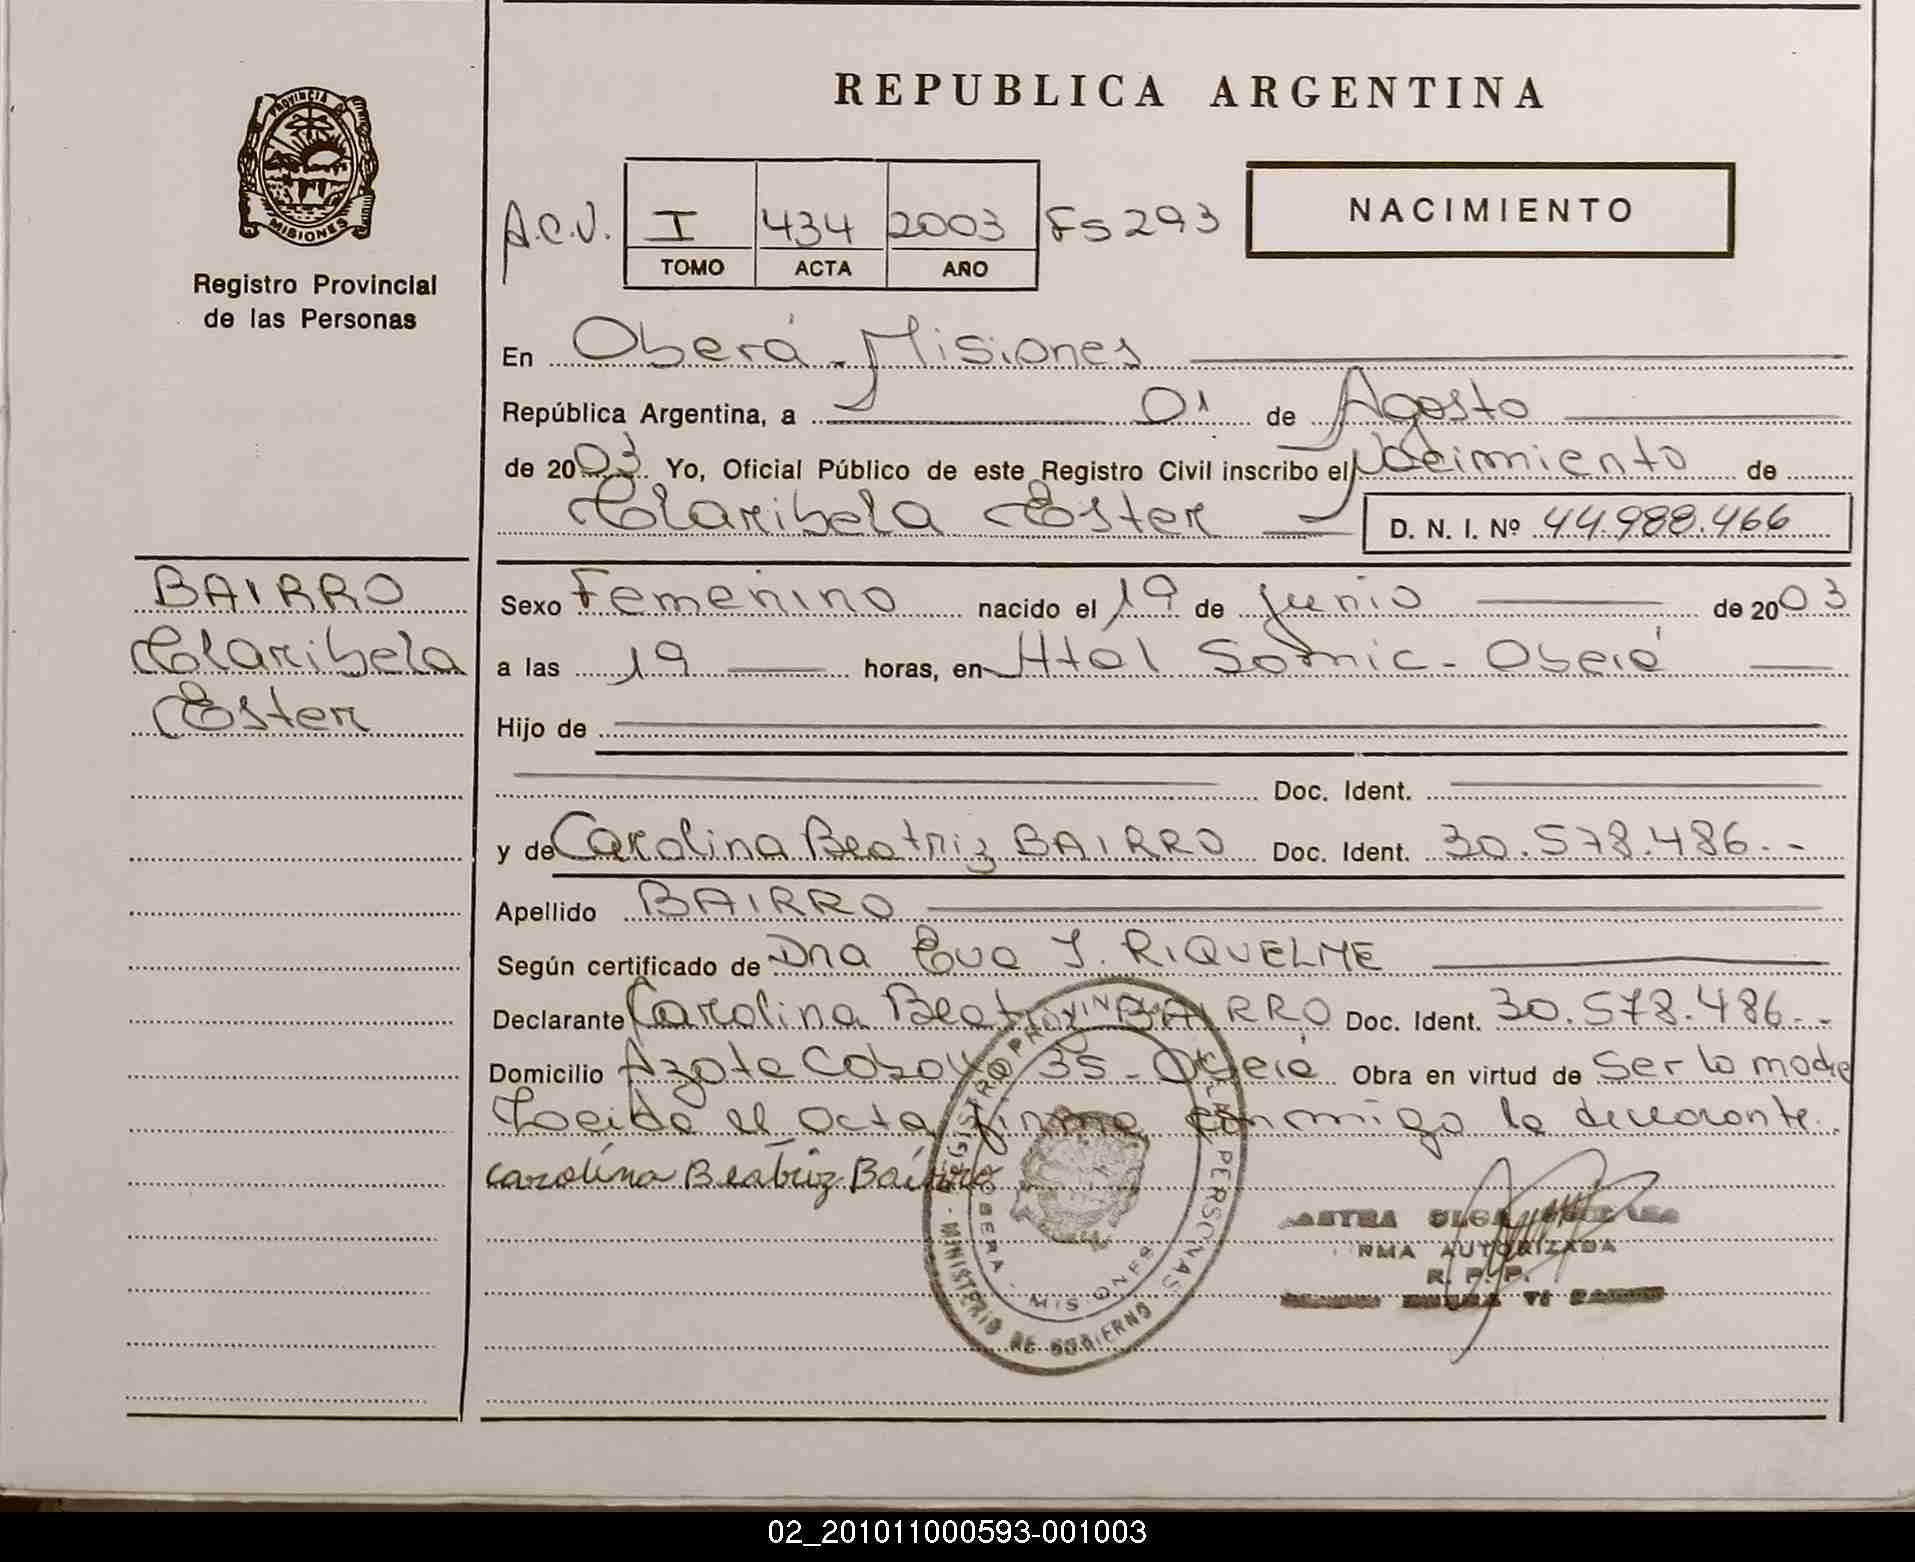 REPUBLICA ARGENTINA
PROVINCIA DE MISIONES
Registro Provincial
de las Personas
A.C.V. I 434 2003 Fs 293
TOMO ACTA AÑO
NACIMIENTO
En Oberá - Misiones
República Argentina, a 01 de Agosto
de 2003 Yo, Oficial Público de este Registro Civil inscribo el Nacimiento de
Claribela Ester
D. N. I. Nº 44.988.466
BAIRRO
Claribela
Ester
Sexo Femenino nacido el 19 de junio de 2003
a las 19 horas, en Htal Samic - Oberá
Hijo de
Doc. Ident.
y de Carolina Beatriz BAIRRO Doc. Ident. 30.578.486.-
Apellido BAIRRO
Según certificado de Dra Eva J. RIQUELME
Declarante Carolina Beatriz BAIRRO Doc. Ident. 30.578.486.-
Domicilio 35 - Oberá Obra en virtud de Ser la madre
Leida el acta firma conmigo la declarante.
Carolina Beatriz Bairro
REGISTRO PROVINCIAL DE LAS PERSONAS - MINISTERIO DE GOBIERNO
OBERA - MISIONES
OLGA
FIRMA AUTORIZADA
R. P. P.
02_201011000593-001003